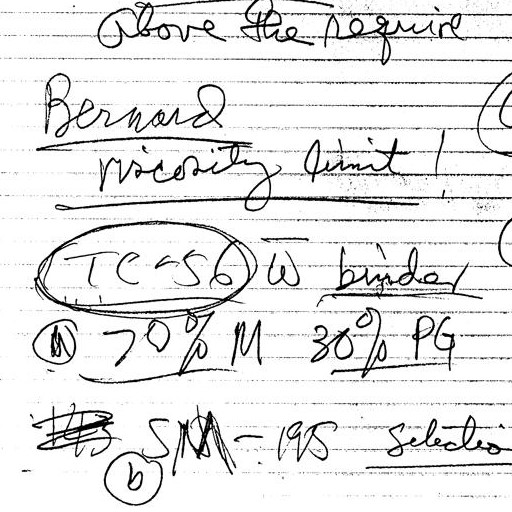 above the require
Bernard
viscosity limit !
TC-56 w binder
(a) 70% M 30% PG
SM-195 selectio
(b)